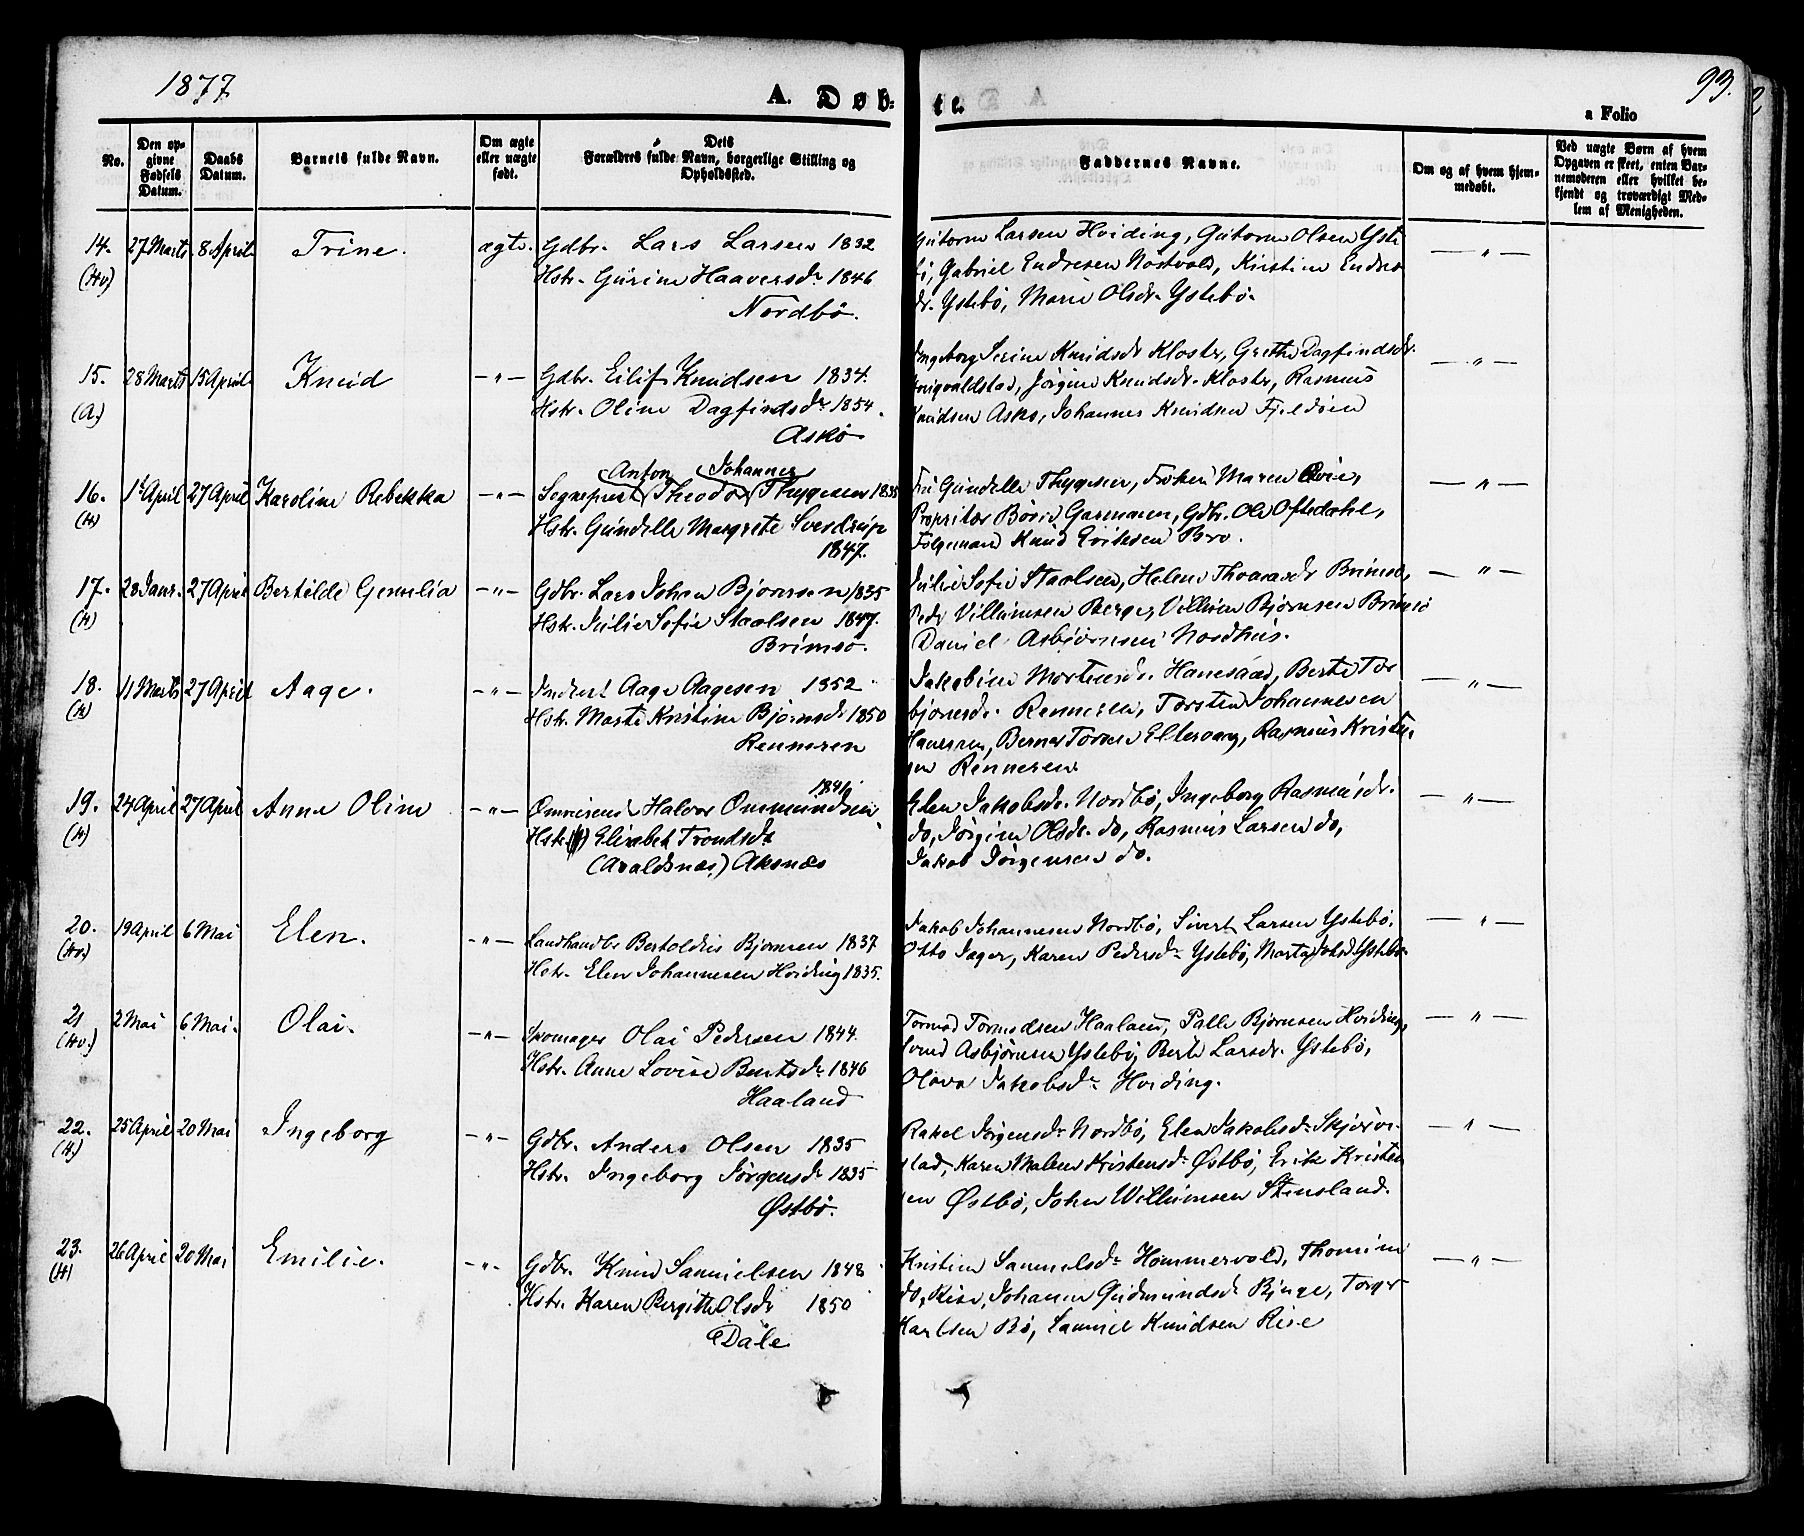 1877
A. Døb-
te.
93.
a Folio
No.
Den op-
givne
Fødsels
Datum.
Daabs
Datum.
Barnets fulde Navn.
Om ægte
eller uægte
født.
Dets
Forældres fulde Navn, borgerlige Stilling og
Opholdssted.
Faddernes Navne.
Om og af hvem hjem-
medøbt.
Ved uægte Børn af hvem
Opgaven er skeet, enten Bar-
nemoderen eller hvilket be-
kjendt og troværdigt Med-
lem af Menigheden.
14. 27 Marts 8 April Trine. ægte. Gdbr. Lars Larsen 1832
(Hv) Hstr. Gurine Haaversdr 1846
Nordbø.
Gutorm Larsen Hviding, Gutorm Olsen Yste
bø, Gabriel Endresen Nostvold, Kristine Endres
dr. Ystebø, Marie Olsdr. Ystebø.
— " —
15. 28 Marts 15 April Knud — " — Gdbr. Eilif Knudsen 1834.
(A) Hstr. Oline Dagfindsdr 1854.
Askø
Ingeborg Serine Knudsdr Kloster, Grethe Dagfindsdr.
Jørgine Knudsdr. Kloster, Rasmus
Knudsen Askø, Johannes Knudsen Fjeldøen
— " —
16. 1ste April 27 April Karoline Rebekka — " — Sogneprest Anton Theodor Johannes Thygesen 1835
(H) Hstr. Gundelle Margrete Sverdrup
1847.
Fru Gundelle Thygesen, Frøken Maren
Propritær Garmann, Gdbr. Ole Oftedahl,
Knud Eriksen Bro.
— " —
17. 28 Janr. 27 April Bertilde Gemelia — " — Gdbr. Lars Johan Bjørnsen 1835
(H) Hstr. Julie Sofie Staalsen 1847.
Brimsø.
Julie Sofie Staalsen, Helene Thomasdr Brimsø,
Peder Villumsen Berge, Villum Bjørnsen Brimsø
Daniel Asbjørnsen Nordhus.
— " —
18. 11 Marts 27 April Aage. — " — Inderst Aage Aagesen 1852
(H) Hstr. Marte Kristine Bjørnsdr 1850
Renneren
Jakobine Mortensdr. Hanesaad, Berte Tor
bjørnsdr. Renneren, Torsten Johannesen
Berner Elleroang, Rasmus Kriste
sen Renneren
— " —
19. 24 April 27 April Anne Oline — " — Halvor Ommundsen 1846
(H) Hstr. Elisabet Trondsdr
(Avaldsnæs) Aksnæs
Elen Jakobsdr. Nordbø, Ingeborg Rasmusdr.
do, Jørgine Olsdr. do, Rasmus Larsen do,
Jakob Jørgensen do.
— " —
20. 19 April 6 Mai Elen. — " — Landhandler Bertoldus Bjørnsen 1837
(Hv) Hstr. Elen Johannesen Hviding 1835.
Jakob Johannesen Nordbø, Sivert Larsen Ystebø,
Otto Jager, Karen Pedersdr Ystebø, Marta Ystebø
— " —
21 2 Mai 6 Mai. Olai. — " — Skomager Olai Pedersen 1844.
(Hv.) Hstr. Anne Lovise Bentsdr 1846
Haaland
Tormod Tormodsen Haaland, Palle Bjørnsen Hviding,
Svend Asbjørnsen Ystebø, Berte Larsdr. Ystebø,
Olava Jakobsdr Hviding.
— " —
22. 25 April 20 Mai Ingeborg — " — Gdbr. Anders Olsen 1835
(H) Hstr. Ingeborg Jørgensdr 1835
Østbø.
Rakel Jørgensdr Nordbø, Elen Jakobsdr Skjørve-
stad, Karen Malene Kristensdr Østbø, Erik Kristen
sen Østbø, John Willumsen Stensland.
— " —
23. 26 April 20 Mai Emilie. — " — Gdbr. Knud Samuelsen 1848
(H) Hstr. Karen Bergitte Olsdr 1850
Dale
Kristine Samuelsdr Hommervold, Thomine
do, Rise, Johanne Gudmundsdr Bjerge, Torger
Karlsen Bø, Samuel Knudsen Rise
— " —